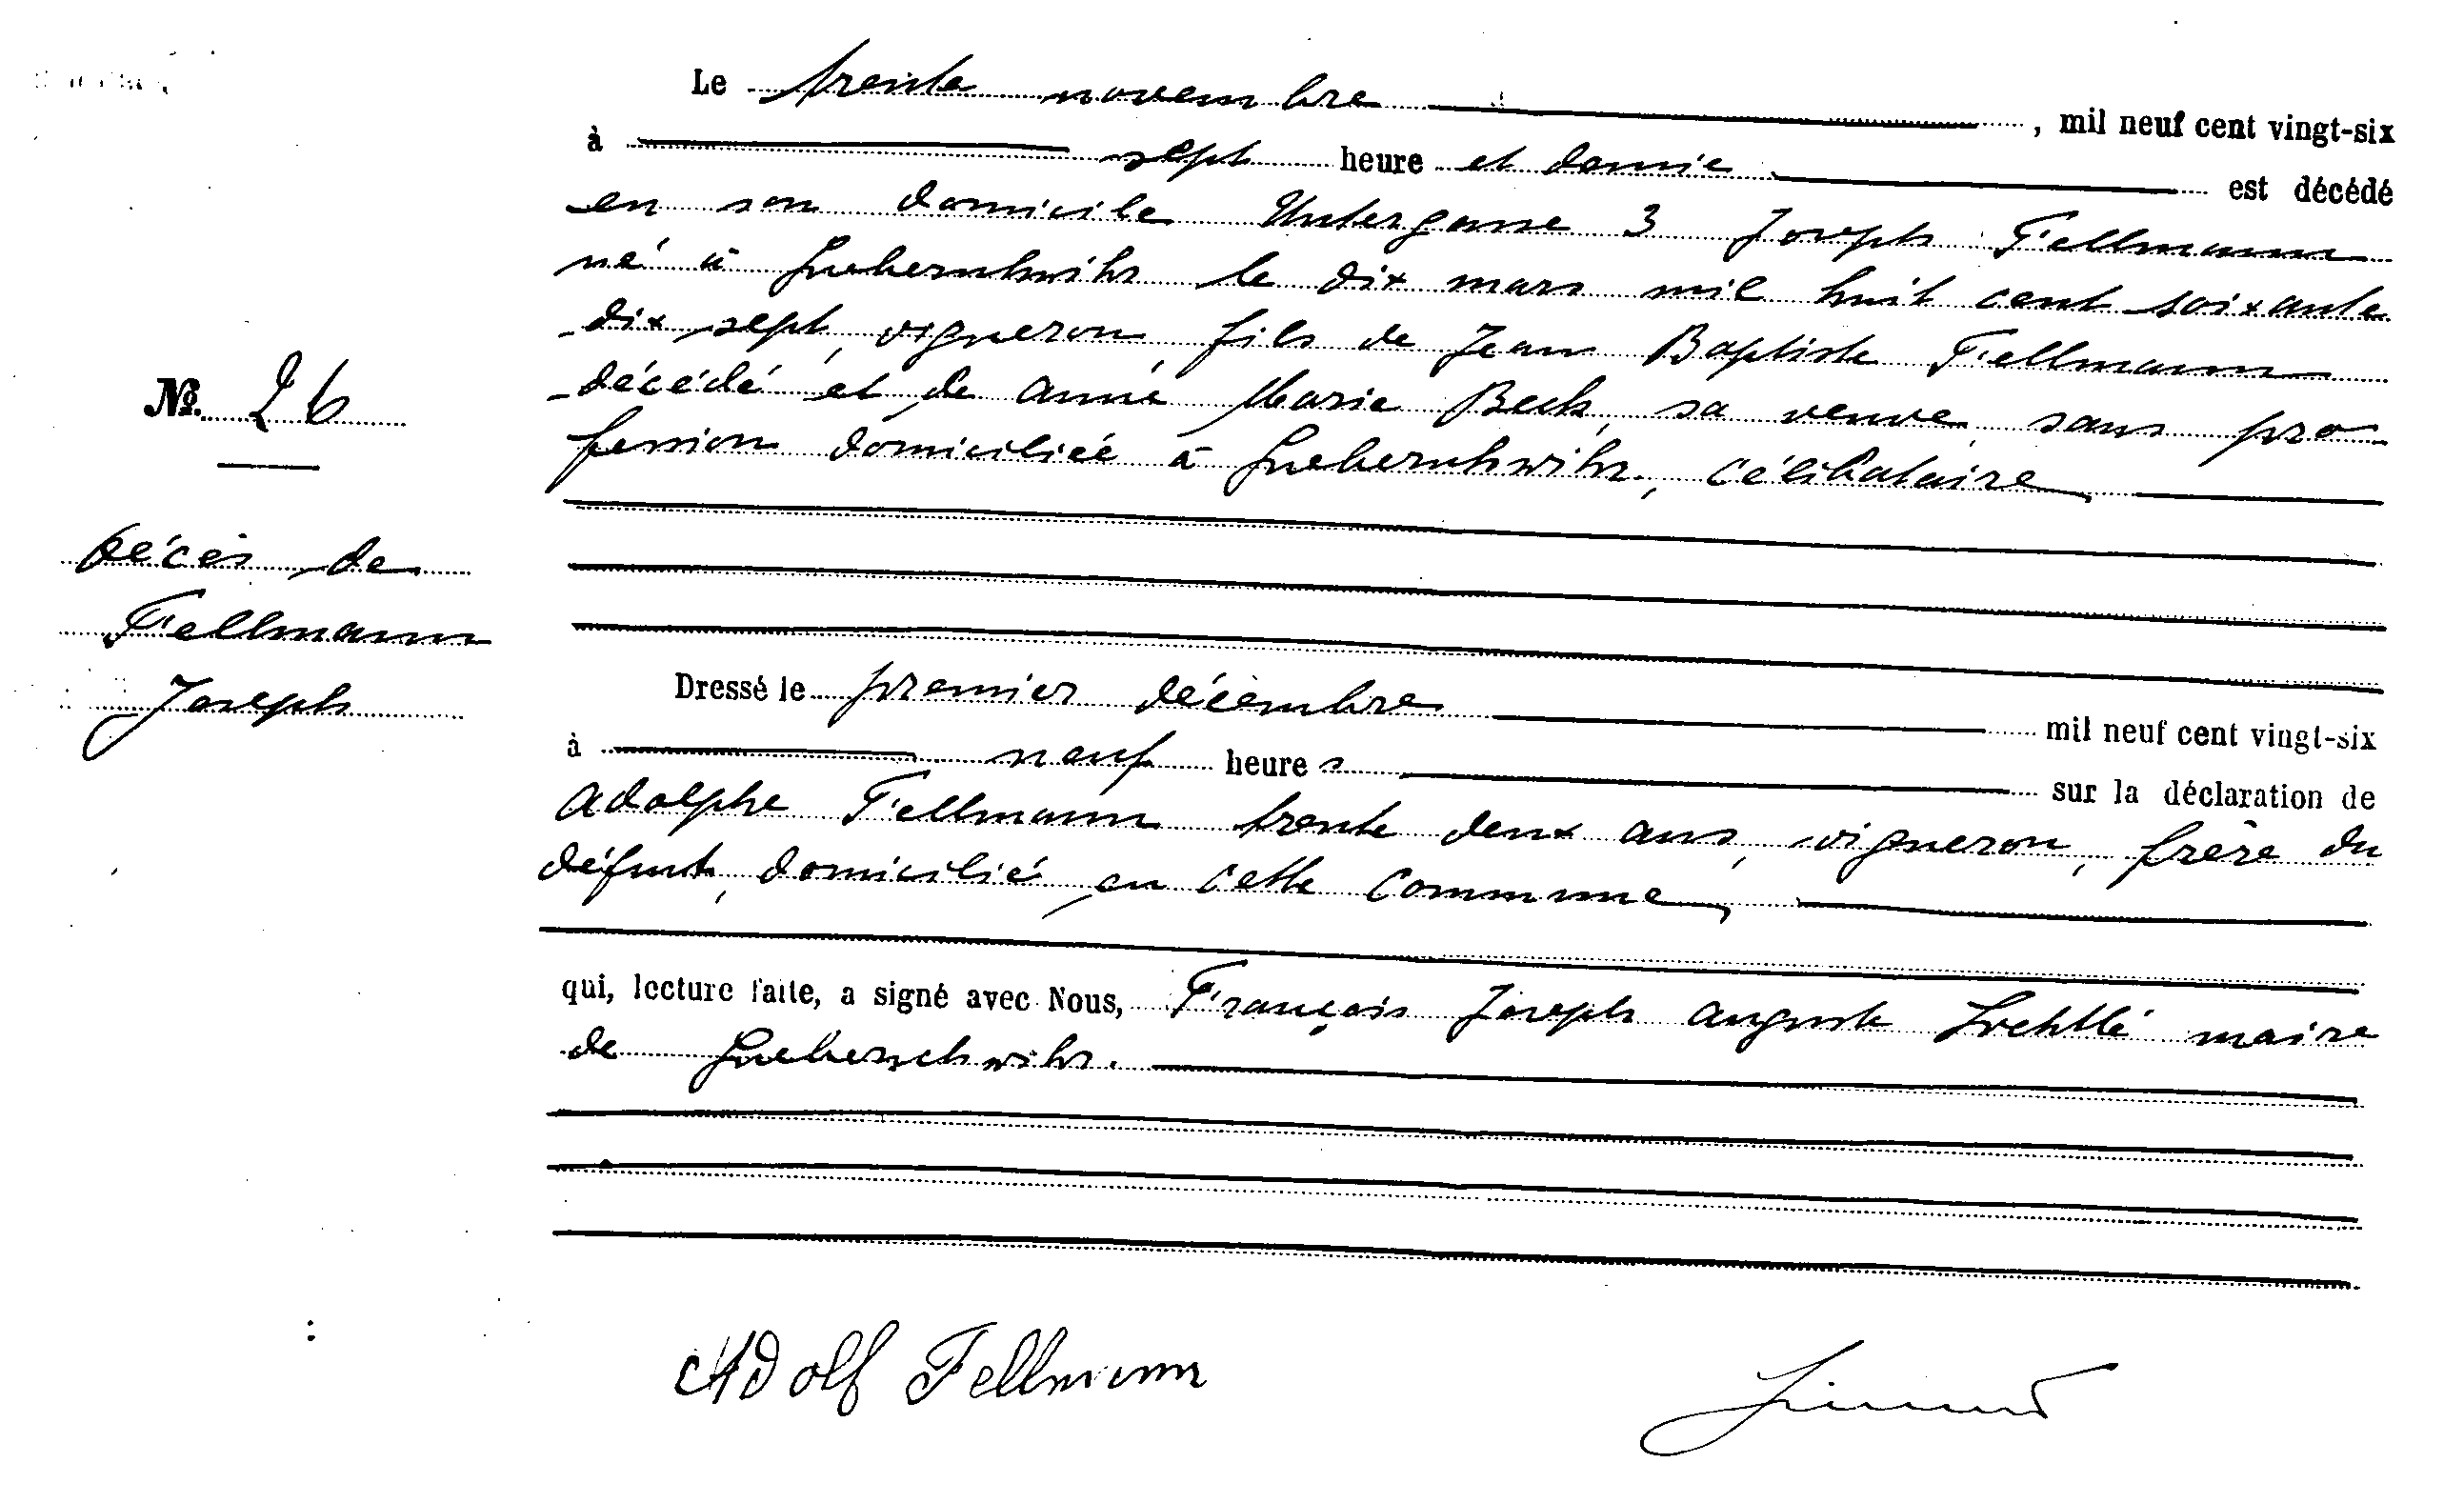 Le trente novembre, mil neuf cent vingt-six
à sept heure et demie est décédé
en son domicile Untergasse 3 Joseph Fellmann
né à Gueberschwihr le dix mars mil huit cent soixante
dix sept, vigneron, fils de Jean Baptiste Fellmann
décédé et de Anne Marie Beck, sa veuve, sans pro
fession domiciliée à Gueberschwihr, célibataire,
No. 26
Décès de
Fellmann
Joseph
Dressé le premier décembre mil neuf cent vingt-six
à neuf heures sur la déclaration de
Adolphe Fellmann trente deux ans, vigneron, frère du
défunt, domicilié en cette commune,
qui, lecture faite, a signé avec Nous, François Joseph Auguste maire
de Gueberschwihr.
Adolf Fellmann